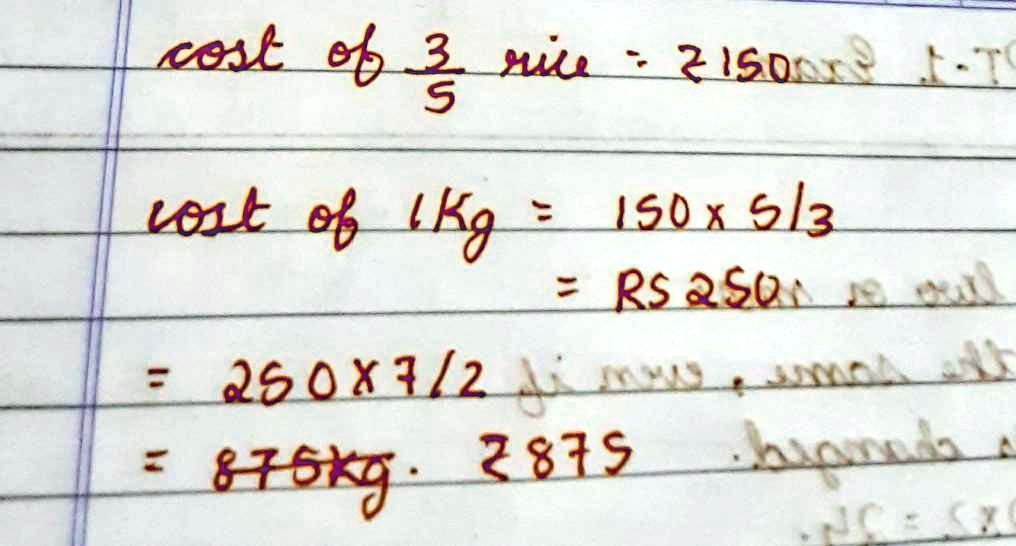 cost of 3/5 rice = ₹150
cost of 1Kg = 150 x 5/3
= RS 250
= 250 x 7/2
= 875kg. ₹875